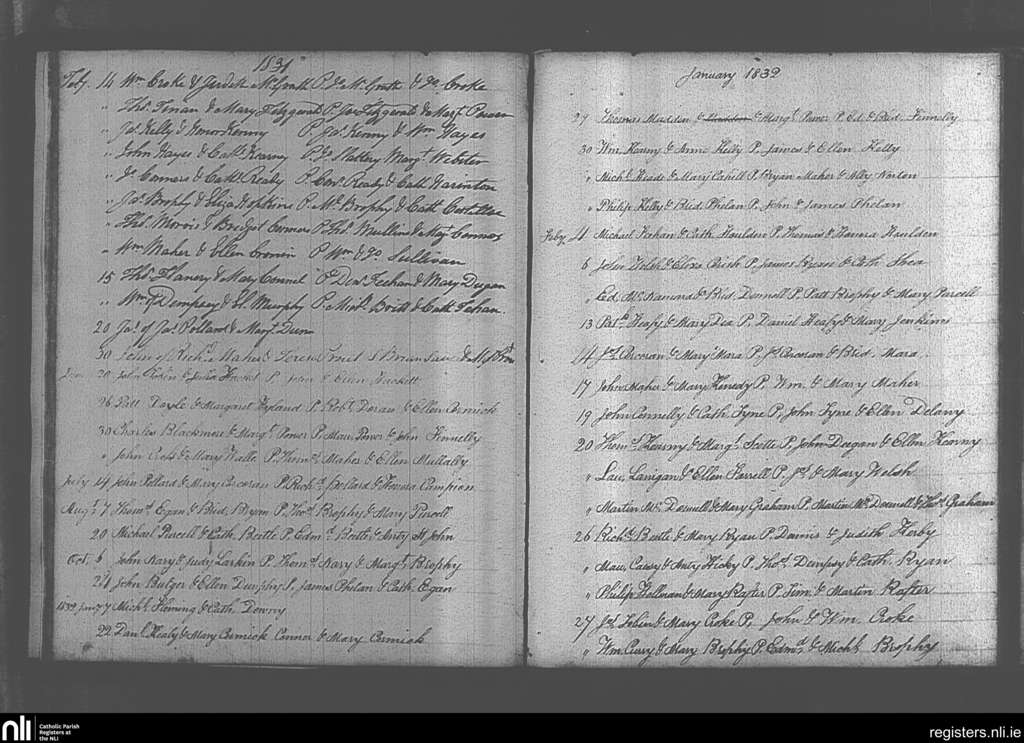 1831
Feby. 14 Wm Croke & Judith McGrath P. Jo. McGrath & Jo. Croke
" Thos. Tinan & Mary Fitzgerald P. Jas Fitzgerald & Margt. Power
" Jas. Kelly & Honor Kenny P. Jas. Kenny & Wm Hayes
" John Hayes & Cath. Kearny P. Jo. Slattery Margt. Webster
" Jo. Connors & Cathe Ready P. Cors. Ready & Cath. Harinton
" Jas. Brophy & Eliza Hopkins P. Ml. Brophy & Cath
" Thos. Morris & Bridget Connors P. Thos. Mullins & Margt. Connors
" Wm Maher & Ellen Cronin P. Wm & Jo. Sullivan
15 Thos. Flanery & Mary Connel P. Dens. Feehan & Mary Dugan
" Wm of Dempsey & El. Murphy P. Michl. Britt & Cath Fehan.
20 Jas. of Jas. Pollard & Margt. Dunn
30 John of Richd. Maher &
20 John & Julia Hackett P. John & Ellen Hackett
26 Patt Doyle & Margaret Hyland P. Robt. Doran & Ellen Cormick
30 Charles Blackmore & Margt. Power P. Maur. Power & John Fennelly
" John Cross & Mary Walle P. Thoms. Maher & Ellen Mullally
July 14 John Pollard & Mary Corcoran P. Richd. Pollard & Honora Campion
Augt. 7 Thoms. Egan & Brid. Dunn P. Thos. Brophy & Mary Purcell
20 Michael Purcell & Cath. Beitte P. Edmd. Beitte & Anty St John
Oct. 6 John Nary & Judy Larkin P. Thoms. Nary & Margt. Brophy
24 John Bulger & Ellen Dunphy P. James Phelan & Cath. Egan
1832 Jany 7 Michl. Fleming & Cath. Downy
22 Danl. Healy & Mary Cormick Connor & Mary Cormick
January 1832
27 Thomas Madden & Margt. Power P. Ed. & Brid. Fennelly
30 Wm. Kearny & Anne Kelly P. James & Ellen Kelly
" Michl. Meade & Mary Cahill P. Bryan Maher & Alley Norton
" Philip Kelly & Brid. Phelan P. John & James Phelan
Feby. 4 Michael Kirhan & Cath. Houlden P. Thomas & Honora Houlden
6 John Welsh & P. James & Cath. Shea
" Ed. Mc.Namara & Brid. Donnell P. Patt Brophy & Mary Purcell
13 Patk. Heafy & Mary Dea P. Daniel Heafy & Mary Jenkins
14 Js. Corcoran & Mary Mara P. Js. Corcoran & Brid. Mara
17 John Maher & Mary Kenedy P. Wm. & Mary Maher
19 John Connelly & Cath. Tyne P. John Tyne & Ellen Delany
20 Thoms. Kearny & Margt. Scotte P. John Deegan & Ellen Kearny
" Lau. Lanigan & Ellen Farrell P. Js. & Mary Welsh
" Martin Mc.Donnell & Mary Graham P. Martin Mc.Donnell & Thos. Graham
26 Richd. Beitle & Mary Ryan P. Dannis & Judith Herby
" Mau. Causy & Anty Hicky P. Thos. Dempsy & Cath. Ryan
" Philip Hollman & Mary Rafter P. Jim. & Martin Rafter
27 Js. Tobin & Mary Croke P. John & Wm. Croke
" Wm. Curry & Mary Brophy P. Edmd. & Michl. Brophy
nli
Catholic Parish
Registers at
the NLI
registers.nli.ie